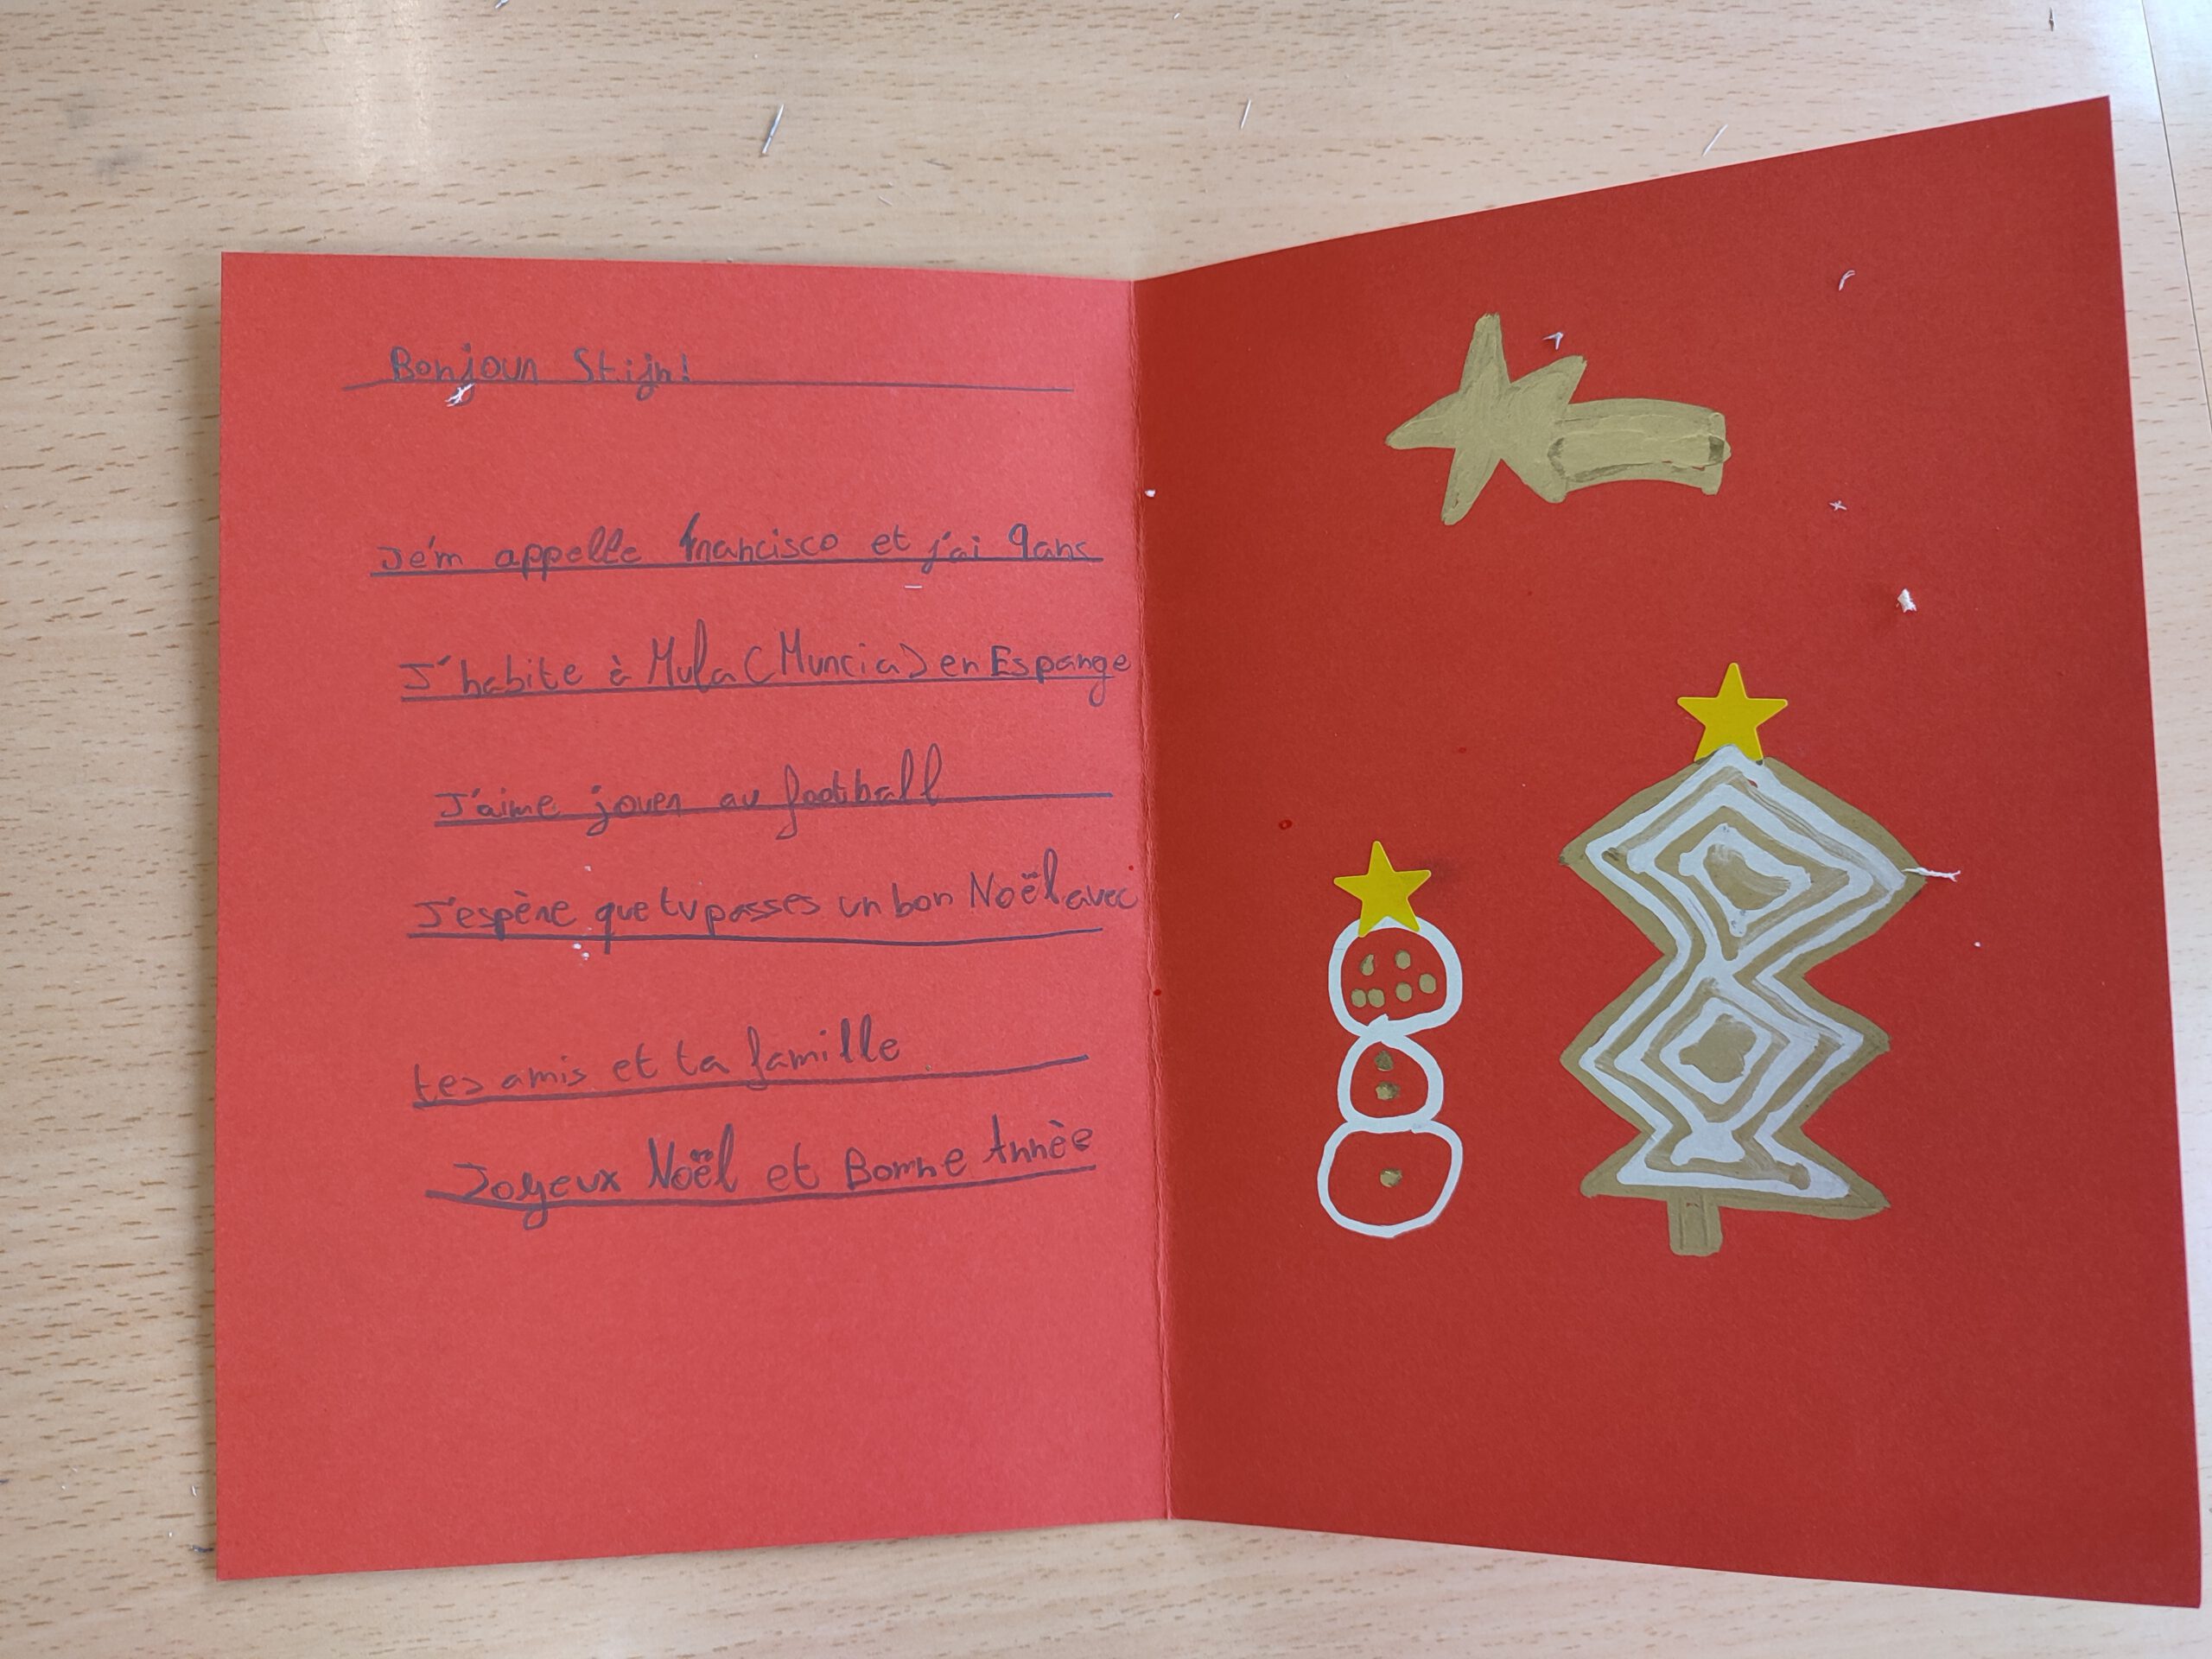 Bonjour Stijn!
Je'm appelle francisco et j'ai 9ans
J'habite à Mula (Murcia) en Espange
J'aime jouer au football
J'espère que tu passes un bon Noël avec
tes amis et ta famille.
Joyeux Noël et Bonne Annèe